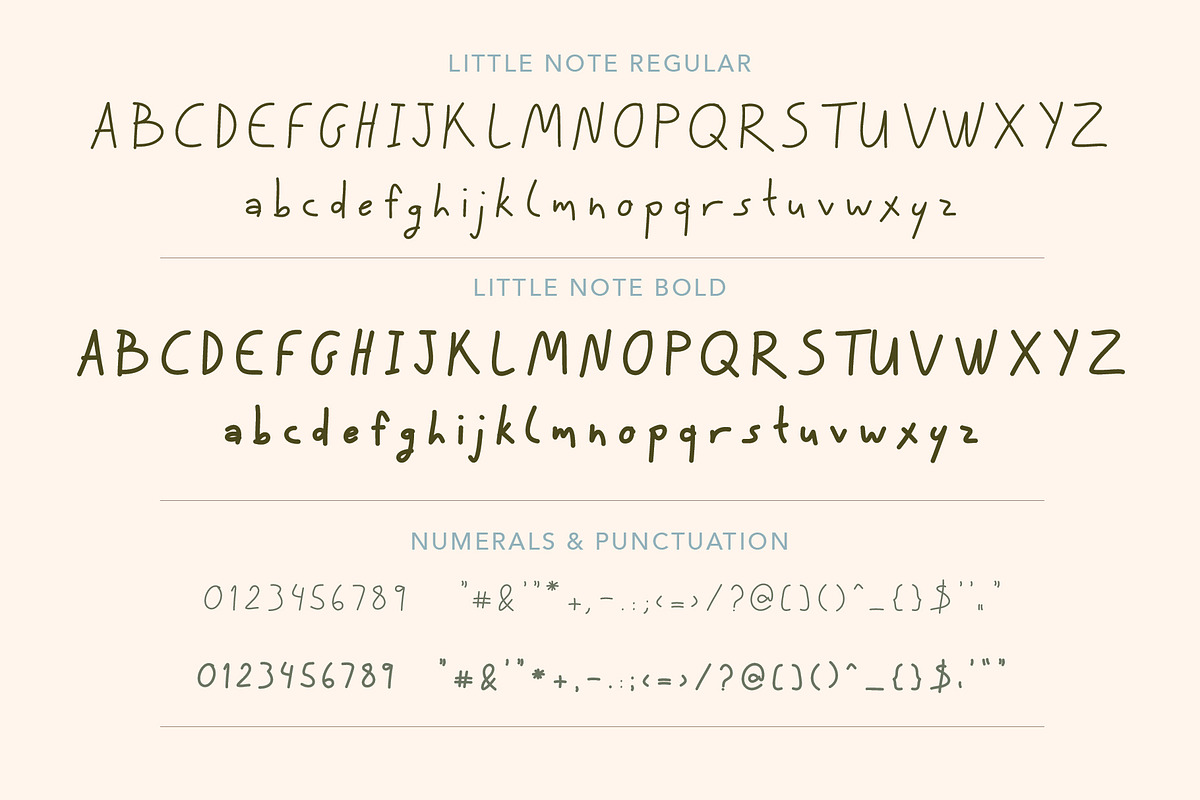 LITTLE NOTE REGULAR
ABCDEFGHIJKLMNOPQRSTUVWXYZ
abcdefghijklmnopqrstuvwxyz
LITTLE NOTE BOLD
ABCDEFGHIJKLMNOPQRSTUVWXYZ
abcdefghijklmnopqrstuvwxyz
NUMERALS & PUNCTUATION
0123456789 "#&'"*+,-.:;<=>/?@[]()^_{}$''„"
0123456789 "#&'"*+,-.:;<=>/?@[]()^_{}$‚'“”